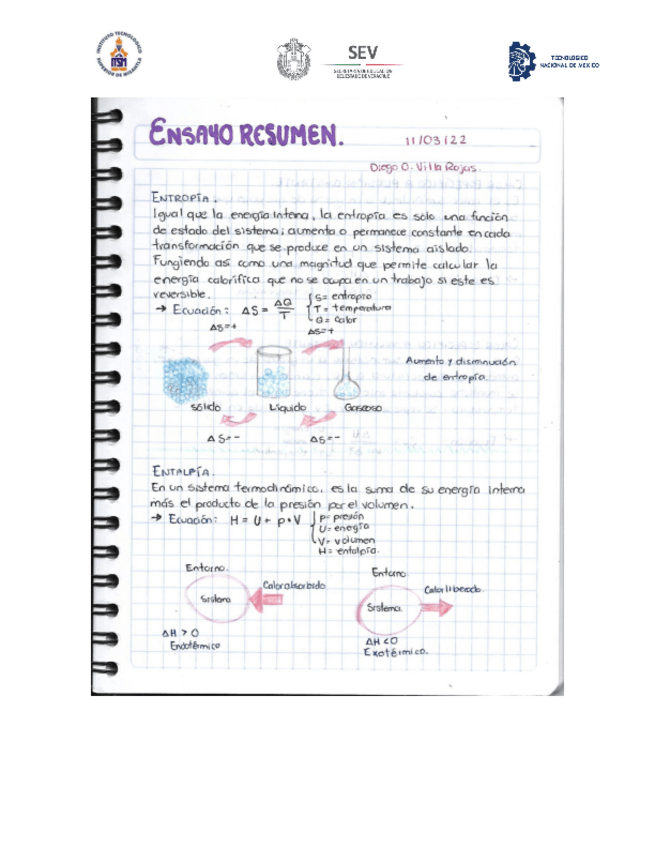 INSTITUTO TECNOLÓGICO
SUPERIOR DE MISANTLA
ITSM
SEV
SECRETARÍA DE EDUCACIÓN
DEL ESTADO DE VERACRUZ
TECNOLÓGICO
NACIONAL DE MÉXICO
ENSAYO RESUMEN.
11/03/22
Diego O. Villa Rojas.
ENTROPÍA.
Igual que la energía interna, la entropía es sólo una función
de estado del sistema; aumenta o permanece constante en cada
transformación que se produce en un sistema aislado.
Fungiendo así como una magnitud que permite calcular la
energía calorífica que no se ocupa en un trabajo si este es
reversible.
→ Ecuación: ΔS = ΔQ/T
S = entropía
T = temperatura
Q = Calor
ΔS=+ ΔS=+
Aumento y disminución
de entropía
Sólido Líquido Gaseoso
ΔS=- ΔS=-
ENTALPÍA.
En un sistema termodinámico, es la suma de su energía interna
más el producto de la presión por el volumen.
→ Ecuación: H = U + p·V
p= presión
U= energía
V= volumen
H= entalpía.
Entorno.
Sistema
Calor absorbido
ΔH > 0
Endotérmico
Entorno
Sistema.
Calor liberado.
ΔH < 0
Exotérmico.